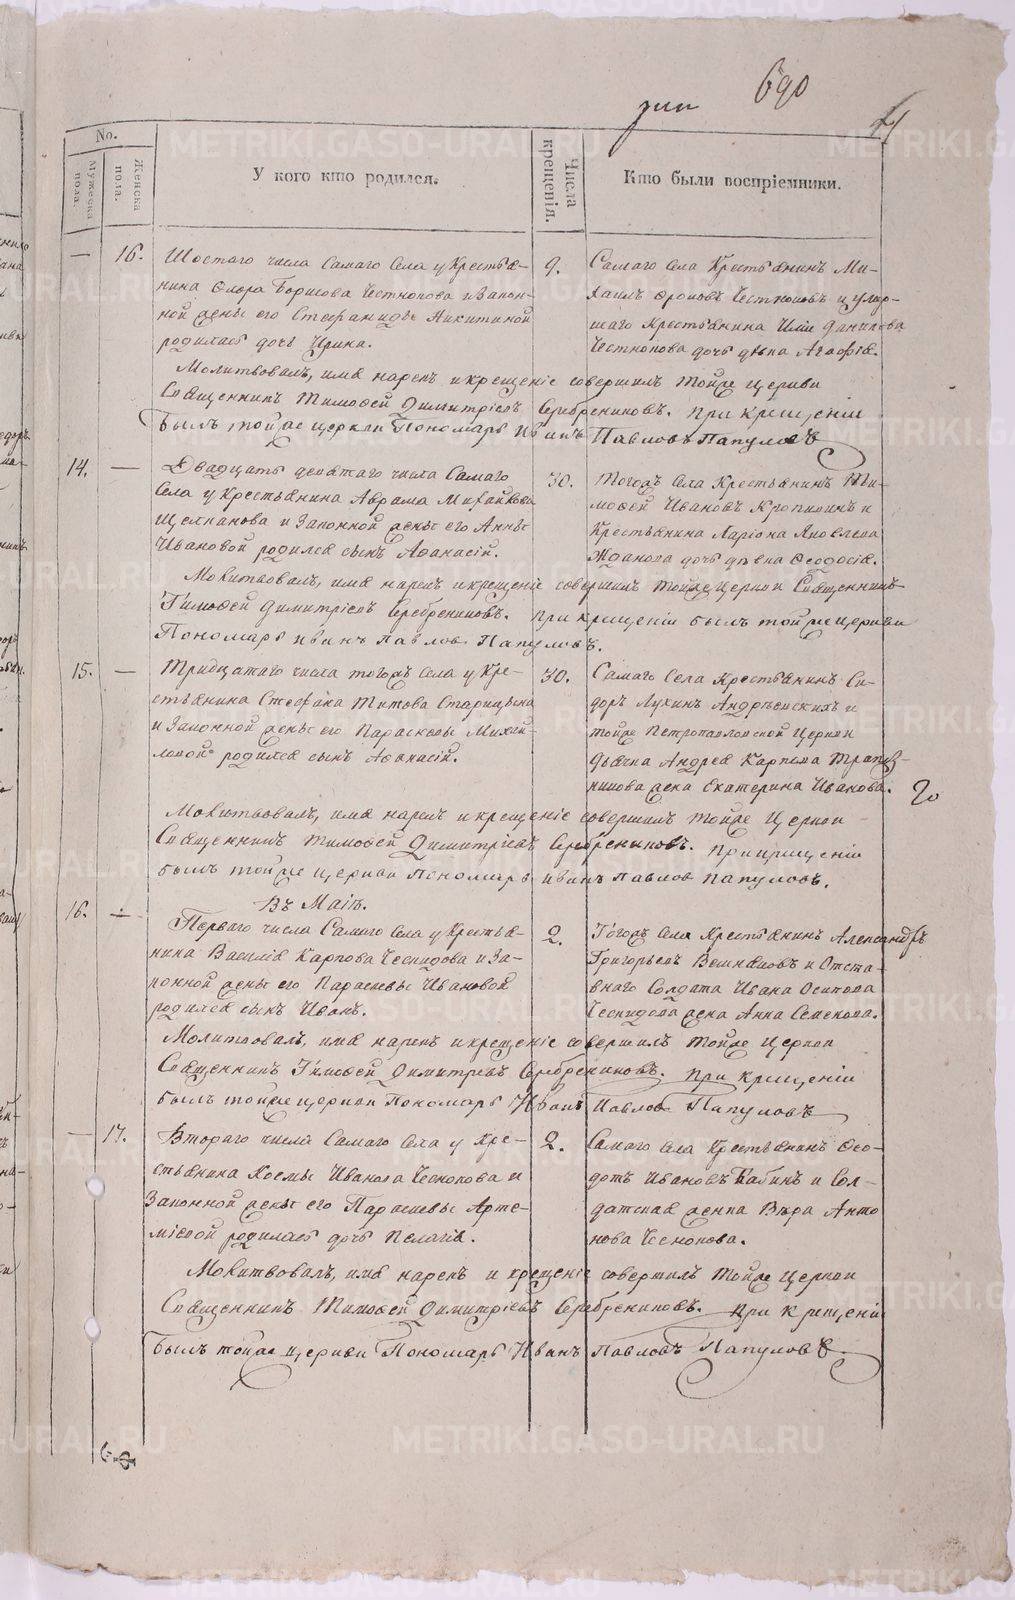 690
No.
Мужеска пола.
Женска пола.
У кого кто родился.
Числа крещенія.
Кто были воспріемники.
— 16. Шостаго числа Самаго Села у Крестья-
нина Флора Борисова Чеснокова и Закон-
ной жены его Стефаниды Никитиной
родилась дочь Ирина.
9.
Самаго Села Крестьянинъ Ми-
хаилъ Чесноковъ и умер-
шаго Крестьянина Иліи Данилова
Чеснокова дочь дѣвка Агафія.
Молитвовалъ, имя нарекъ и крещеніе совершилъ тойже церкви
Священникъ Тимофей Димитріевъ Серебрениковъ. При крещеніи
былъ тойже церкви Пономарь Иванъ Павловъ Папуловъ
14. — Двадцать девятаго числа Самаго
Села у Крестьянина Аврама Михайлова
и Законной жены его Анны
Ивановой родился сынъ Афанасій.
30.
Тогожъ Села Крестьянинъ Ти-
мофей Ивановъ Кропинъ и
Крестьянина Ларіона Яковлева
Жданова дочь дѣвка Феодосія.
Молитвовалъ, имя нарекъ и крещеніе совершилъ тойже Церкви Священникъ
Тимофей Димитріевъ Серебрениковъ. При крещеніи былъ тойже церкви
Пономарь Иванъ Павловъ Папуловъ.
15. — Тридцатаго числа тогожъ Села у Кре-
стьянина Стефана Титова Старицына
и Законной жены его Параскевы Михай-
ловой родился сынъ Афанасій.
30.
Самаго Села Крестьянинъ Си-
доръ Лукинъ Андреевскихъ и
тойже Петропавловской Церкви
Дьячка Андрея Карпова Трапез-
никова жена Екатерина Иванова.
Молитвовалъ, имя нарекъ и крещеніе совершилъ тойже Церкви
Священникъ Тимофей Димитріевъ Серебрениковъ. При крещеніи
былъ тойже церкви Пономарь Иванъ Павловъ Папуловъ.
Въ Маіѣ.
16. — Перваго числа Самаго Села у Крестья-
нина Василія Карпова Чеснокова и За-
конной жены его Параскевы Ивановой
родился сынъ Иванъ.
2.
Тогожъ Села Крестьянинъ Александръ
Григорьевъ Вешняковъ и Отста-
внаго Солдата Ивана Осипова
жена Анна Семенова.
Молитвовалъ, имя нарекъ и крещеніе совершилъ тойже Церкви
Священникъ Тимофей Димитріевъ Серебрениковъ. При крещеніи
былъ тойже церкви Пономарь Иванъ Павловъ Папуловъ
— 17. Втораго числа Самаго Села у Кре-
стьянина Космы Иванова Чеснокова и
Законной жены его Параскевы Арте-
міевой родилась дочь Пелагія.
2.
Самаго Села Крестьянинъ Фео-
дотъ Ивановъ Бабинъ и Сол-
датская женка Вѣра Анто
нова Чеснокова.
Молитвовалъ, имя нарекъ и крещеніе совершилъ тойже Церкви
Священникъ Тимофей Димитріевъ Серебрениковъ. При крещеніи
былъ тойже церкви Пономарь Иванъ Павловъ Папуловъ.
METRIKI.GASO-URAL.RU